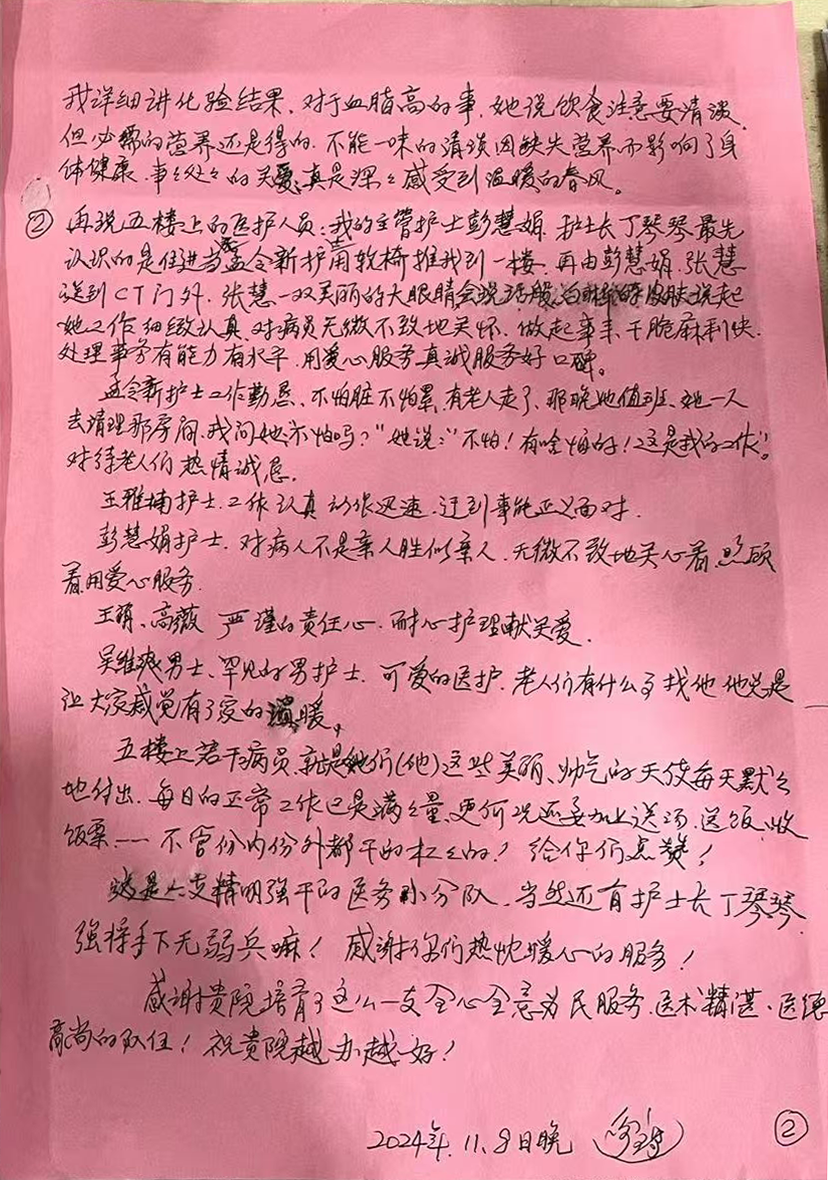 我详细讲化验结果、对于血脂高的事,她说饮食注意要清淡、
但必需的营养还是得的、不能一味的清淡因缺失营养而影响了身
体健康、事々处々的关爱、真是深々感受到温暖的春风。
② 再说五楼上的医护人员:我的主管护士彭慧娟、护士长丁琴琴最先
认识的是住进当天孟令新护士用轮椅推我到一楼、再由彭慧娟、张慧
送到CT门外、张慧一双美丽的大眼睛会说话般、白嫩的皮肤说起
她工作细致认真、对病员无微不致地关怀、做起事来干脆麻利快、
处理事务有能力有水平、用爱心服务真诚服务好口碑。
孟令新护士工作勤恳、不怕脏不怕累、有老人走了、那晚她值班、她一人
去清理那房间、我问她你怕吗?"她说:"不怕!有啥怕的!这是我的工作"。
对待老人们热情诚恳。
王雅楠护士、工作认真动作迅速、迂到事能正面对、
彭慧娟护士、对病人不是亲人胜似亲人、无微不致地关心着、照顾
着用爱心服务、
王萌、高薇 严谨的责任心、耐心护理献关爱、
吴维爽男士、罕见的男护士、可爱的医护、老人们有什么事找他他总是
让大家感觉有了家的温暖、
五楼上若干病员、就是她们(他)这些美丽、帅气的天使每天默々
地付出、每日的正常工作已是满々量、更何况还要加上送汤、送饭、收
饭票——不管份内份外都干的杠々的!给你们点赞!
这是一支精明强干的医务小分队、当然还有护士长丁琴琴、
强将手下无弱兵嘛!感谢你们热忱暖心的服务!
感谢贵院培育了这么一支全心全意为民服务、医术精湛、医德
高尚的队伍!祝贵院越办越好!
2024年.11.8日晚
②